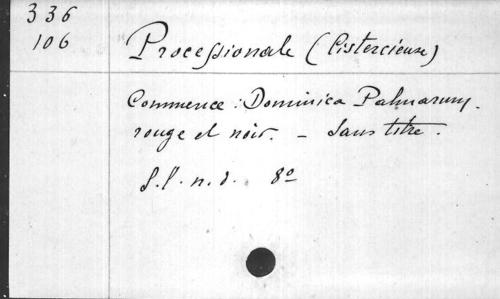 336
106
Processionale (Cistercieuse)
Commence : Dominica Palmarum.
rouge et noir. - Sans titre.
S. l. n. d. 8º